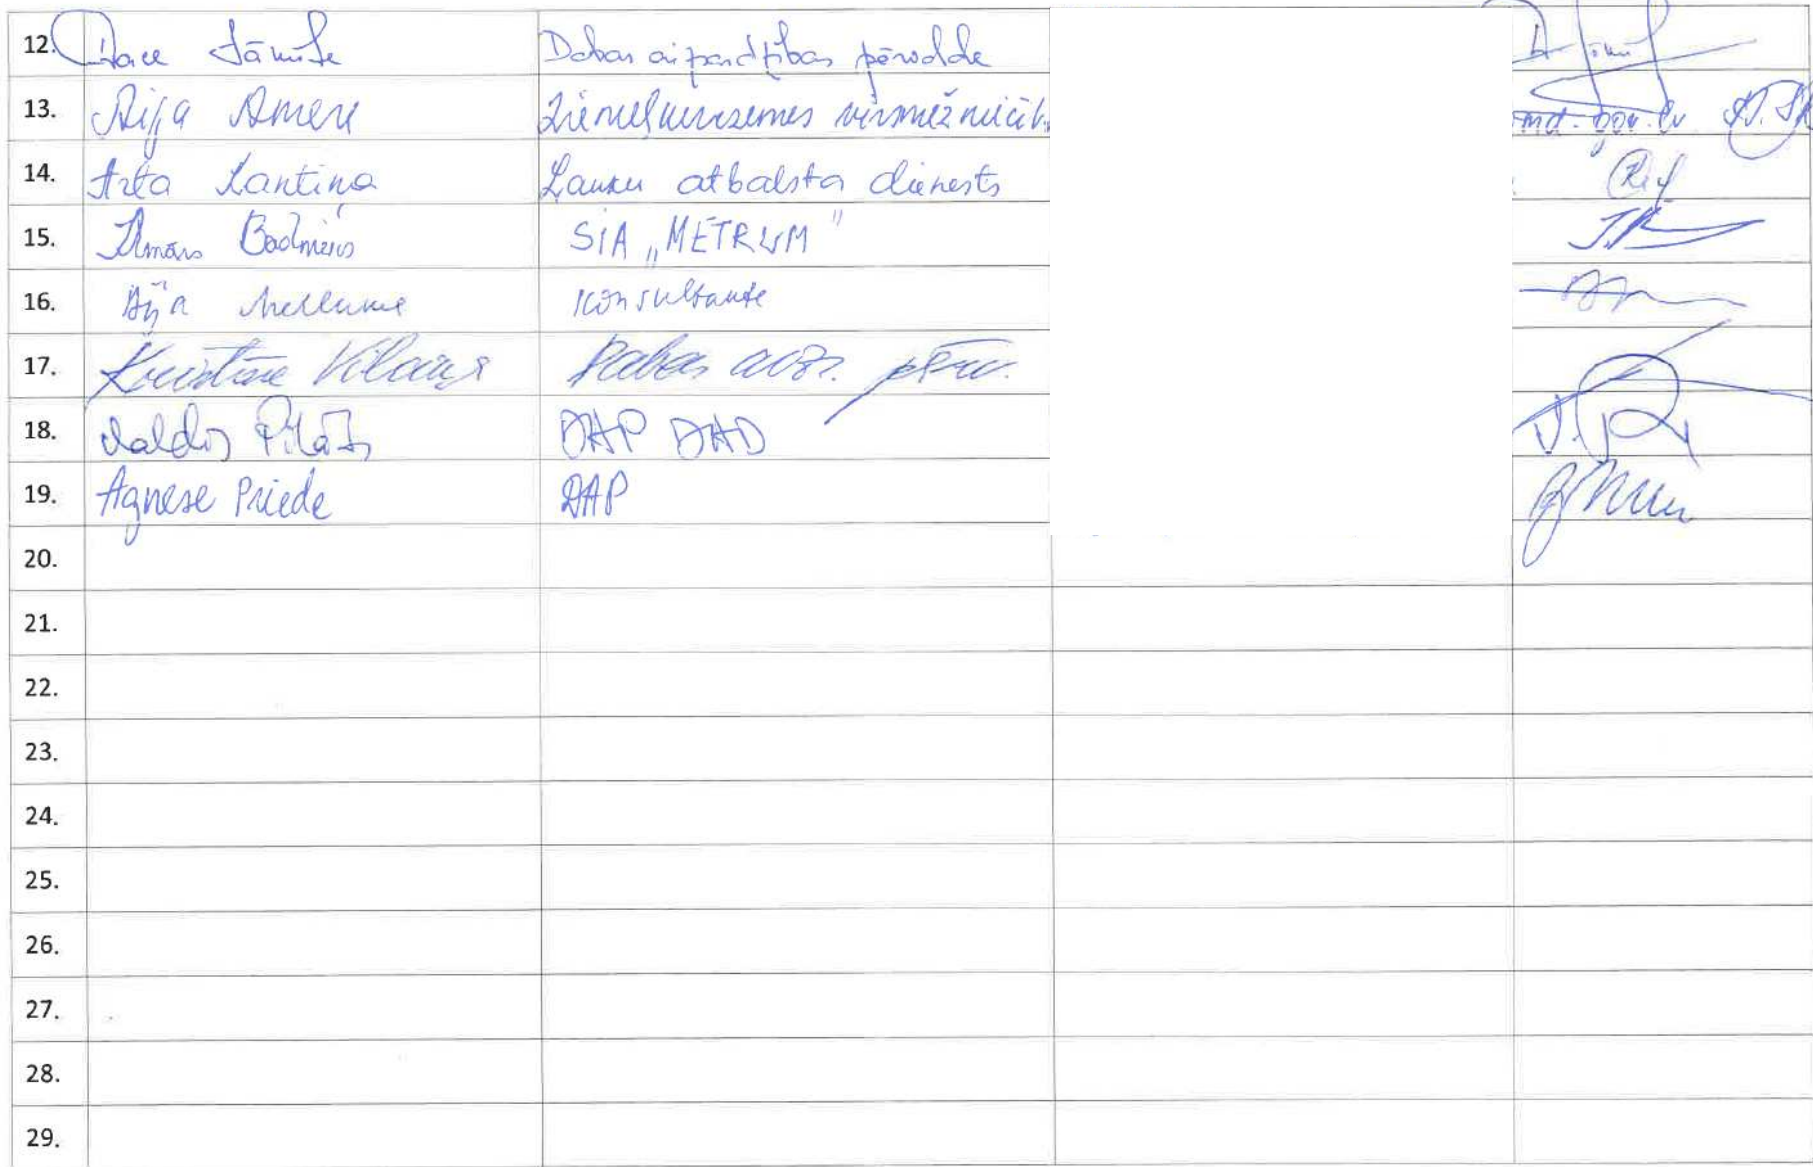 12. Dace Sāmīte Dabas aizsardzības pārvalde
13. Aija Amere Ziemeļkurzemes virsmežniecīb.
md.gov.lv
14. Arta Lantiņa Lauku atbalsta dienests
15. Ilmārs Bodnieks SIA „METRUM”
16. Aija konsultante
17. Kristīne Vilciņa Dabas aizs. pārv.
18. Valdis Pilāts DAP DAD
19. Agnese Priede DAP
20.
21.
22.
23.
24.
25.
26.
27.
28.
29.